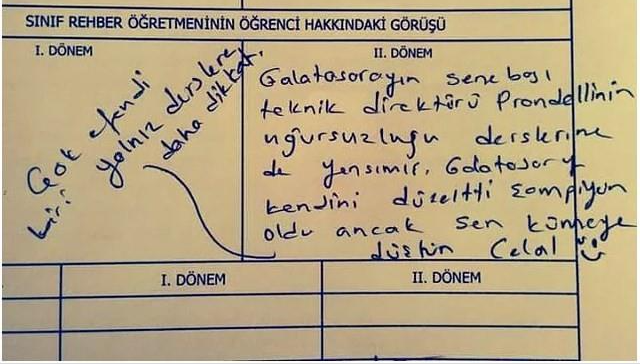 SINIF REHBER ÖĞRETMENİNİN ÖĞRENCİ HAKKINDAKİ GÖRÜŞÜ
I. DÖNEM
Çok efendi
biri yalnız derslere
daha dikkat.
II. DÖNEM
Galatasarayın sene başı
teknik direktörü Prandellinin
uğursuzluğu derslerine
de yansımış. Galatasaray
kendini düzeltti şampiyon
oldu ancak sen kümeye
düştün Celal
I. DÖNEM
II. DÖNEM